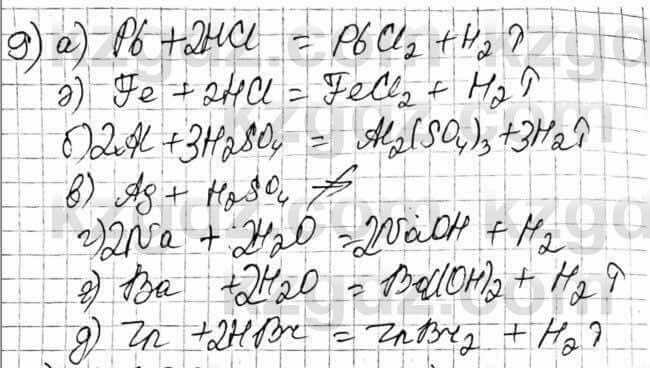 9) а) Pb + 2HCl = PbCl₂ + H₂↑
г) Fe + 2HCl = FeCl₂ + H₂↑
б) 2Al + 3H₂SO₄ = Al₂(SO₄)₃ + 3H₂↑
в) Ag + H₂SO₄ ≠
г) 2Na + 2H₂O = 2NaOH + H₂
г) Ba + 2H₂O = Ba(OH)₂ + H₂↑
д) Zn + 2HBr = ZnBr₂ + H₂↑
kzgdz.com